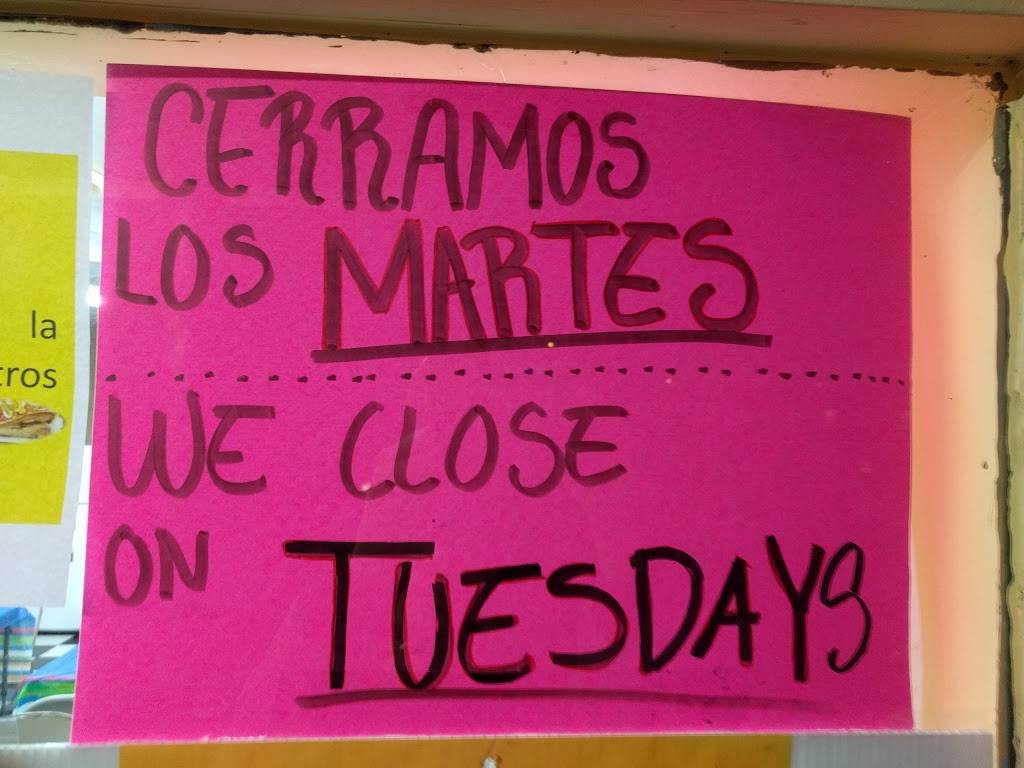 CERRAMOS
LOS MARTES
WE CLOSE
ON TUESDAYS
la
tros